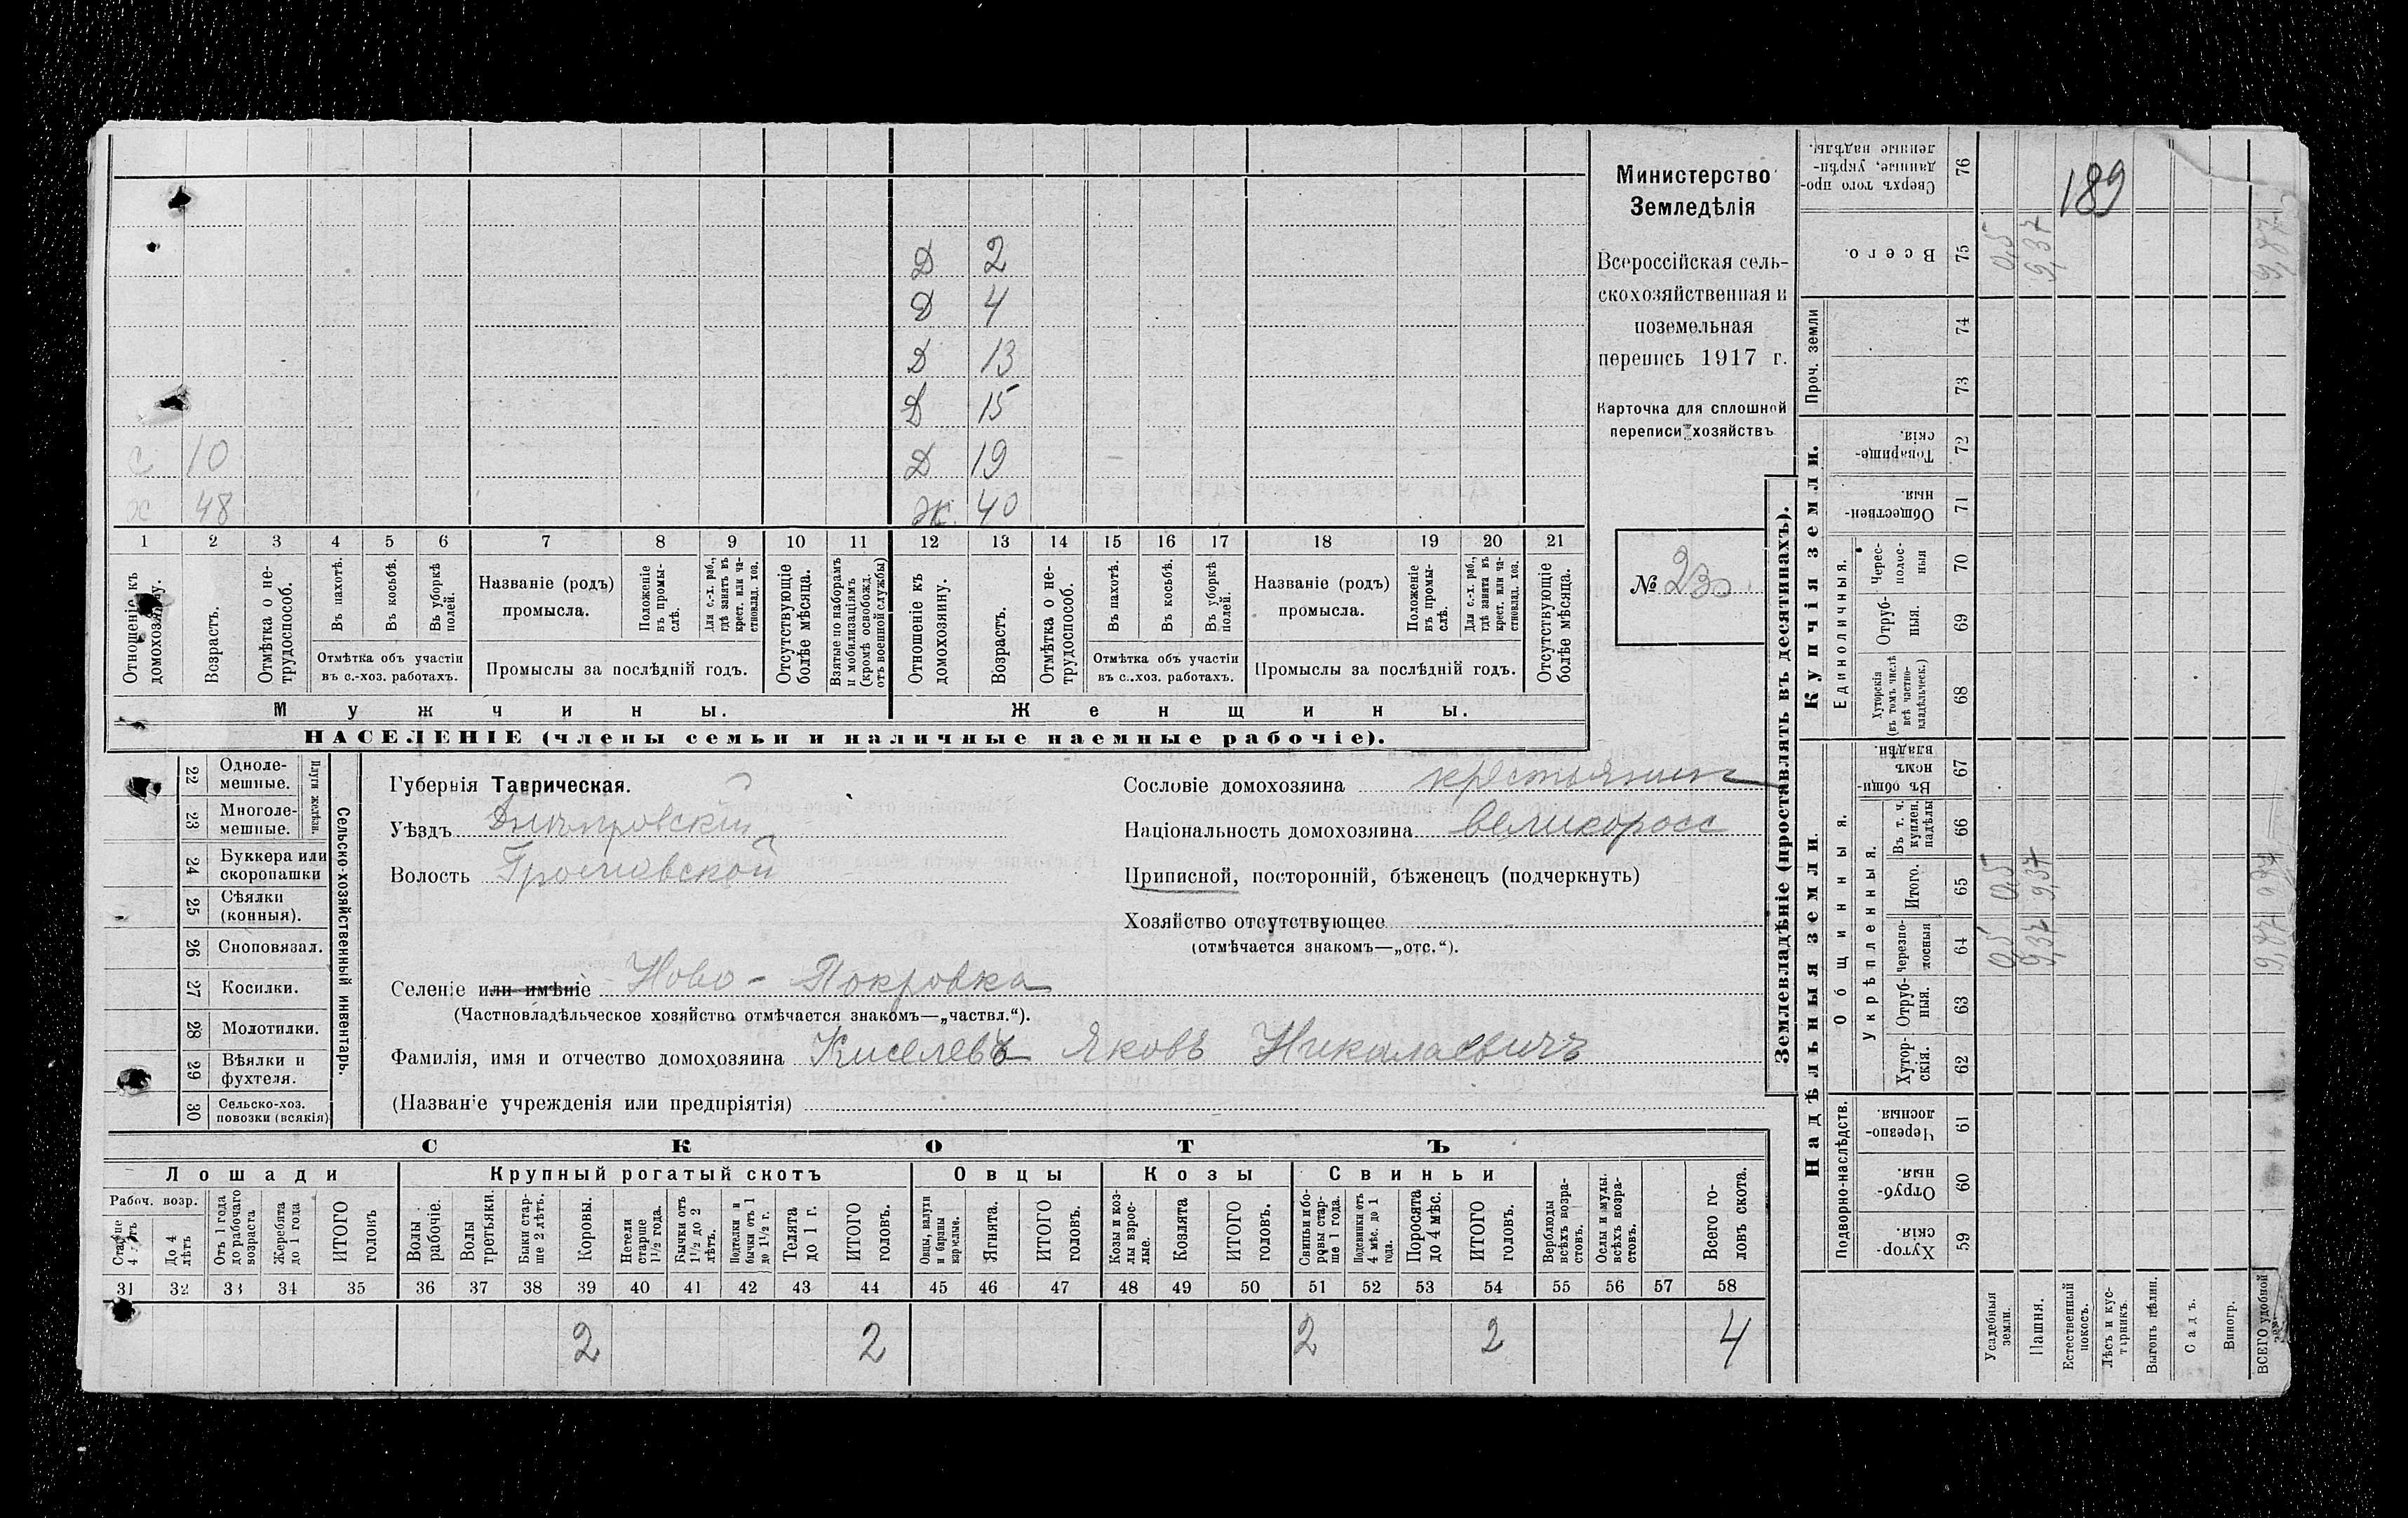 189
Министерство
Земледѣлія
Всероссійская сель-
скохозяйственная и
поземельная
перепись 1917 г.
Карточка для сплошной
переписи хозяйствъ
№ 230
Д 2
Д 4
Д 13
Д 15
с 10 Д 19
х 48 ж. 40
1 2 3 4 5 6 7 8 9 10 11 12 13 14 15 16 17 18 19 20 21
Отношеніе къ домохозяину.
Возрастъ.
Отмѣтка о не-трудоспособ.
Въ пахотѣ.
Въ косьбѣ.
Въ уборкѣ полей.
Отмѣтка объ участіи
въ с.-хоз. работахъ.
Названіе (родъ)
промысла.
Положеніе въ промы-слѣ.
Для с.-х. раб., гдѣ занятъ въ крест. или ча-стновлад. хоз.
Промыслы за послѣдній годъ.
Отсутствующіе болѣе мѣсяца.
Взятые по наборамъ и мобилизаціямъ (кромѣ освобожд. отъ военной службы)
Отношеніе къ домохозяину.
Возрастъ.
Отмѣтка о не-трудоспособ.
Въ пахотѣ.
Въ косьбѣ.
Въ уборкѣ полей.
Отмѣтка объ участіи
въ с..хоз. работахъ.
Названіе (родъ)
промысла.
Положеніе въ промы-слѣ.
Для с.-х. раб., гдѣ занята въ крест. или ча-стновлад. хоз.
Промыслы за послѣдній годъ.
Отсутствующіе болѣе мѣсяца.
Мужчины. Женщины.
НАСЕЛЕНІЕ (члены семьи и наличные наемные рабочіе).
Сельско-хозяйственный инвентарь.
Плуги желѣзн.
22 Одноле-мешные.
23 Многоле-мешные.
24 Буккера или скоропашки
25 Сѣялки (конныя).
26 Сноповязал.
27 Косилки.
28 Молотилки.
29 Вѣялки и фухтеля.
30 Сельско-хоз. повозки (всякія)
Губернія Таврическая.
Уѣздъ Днѣпровскій
Волость
Селеніе или имѣніе Ново-Покровка
(Частновладѣльческое хозяйство отмѣчается знакомъ—„частвл.“).
Фамилія, имя и отчество домохозяина Киселевъ Яковъ Николаевичъ
(Названіе учрежденія или предпріятія)
Сословіе домохозяина крестьянин
Національность домохозяина великоросс
Приписной, посторонній, бѣженецъ (подчеркнуть)
Хозяйство отсутствующее
(отмѣчается знакомъ—„отс.“).
СКОТЪ
Лошади Крупный рогатый скотъ Овцы Козы Свиньи
Рабоч. возр.
Старше 4 лѣтъ
До 4 лѣтъ
Отъ 1 года до рабочаго возраста
Жеребята до 1 года
ИТОГО головъ
Волы рабочіе.
Волы третьяки.
Быки стар-ше 2 лѣтъ.
Коровы.
Нетели старше 1½ года.
Бычки отъ 1½ до 2 лѣтъ.
Подтелки и бычки отъ 1 до 1½ г.
Телята до 1 г.
ИТОГО головъ.
Овцы, валухи и бараны взрослые.
Ягнята.
ИТОГО головъ.
Козы и коз-лы взрос-лые.
Козлята
ИТОГО головъ.
Свиньи и бо-ровы стар-ше 1 года.
Подсвинки отъ 4 мѣс. до 1 года.
Поросята до 4 мѣс.
ИТОГО головъ.
Верблюды всѣхъ возра-стовъ.
Ослы и мулы. всѣхъ возра-стовъ.
Всего го-ловъ скота.
31 32 33 34 35 36 37 38 39 40 41 42 43 44 45 46 47 48 49 50 51 52 53 54 55 56 57 58
2 2 2 2 4
Землевладѣніе (проставлять въ десятинахъ).
Надѣльныя земли.
Купчія земли.
Проч. земли
Подворно-наслѣдств.
Общинныя.
Укрѣпленныя.
Единоличныя.
Хутор-скія. 59
Отруб-ныя. 60
Черезпо-лосныя. 61
Хутор-скія. 62
Отруб-ныя. 63
Черезпо-лосныя 64
Итого. 65
Въ т. ч. куплен. надѣлы 66
Въ общин-номъ владѣн. 67
Хуторскія (въ томъ числѣ всѣ частно-владѣльческ.) 68
Отруб-ныя. 69
Черес-полос-ныя 70
Обществен-ныя. 71
Товарище-скія. 72
73
74
Всего. 75
Сверхъ того про-данные, укрѣп-ленные надѣлы. 76
Усадебныя земли. 0,5 0,5 0,5
Пашня. 9,37 9,37 9,37
Естественный покосъ.
Лѣсъ и кус-тарникъ.
Выгонъ цѣлин.
Садъ.
Виногр.
ВСЕГО удобной 9,87 9,87 9,87